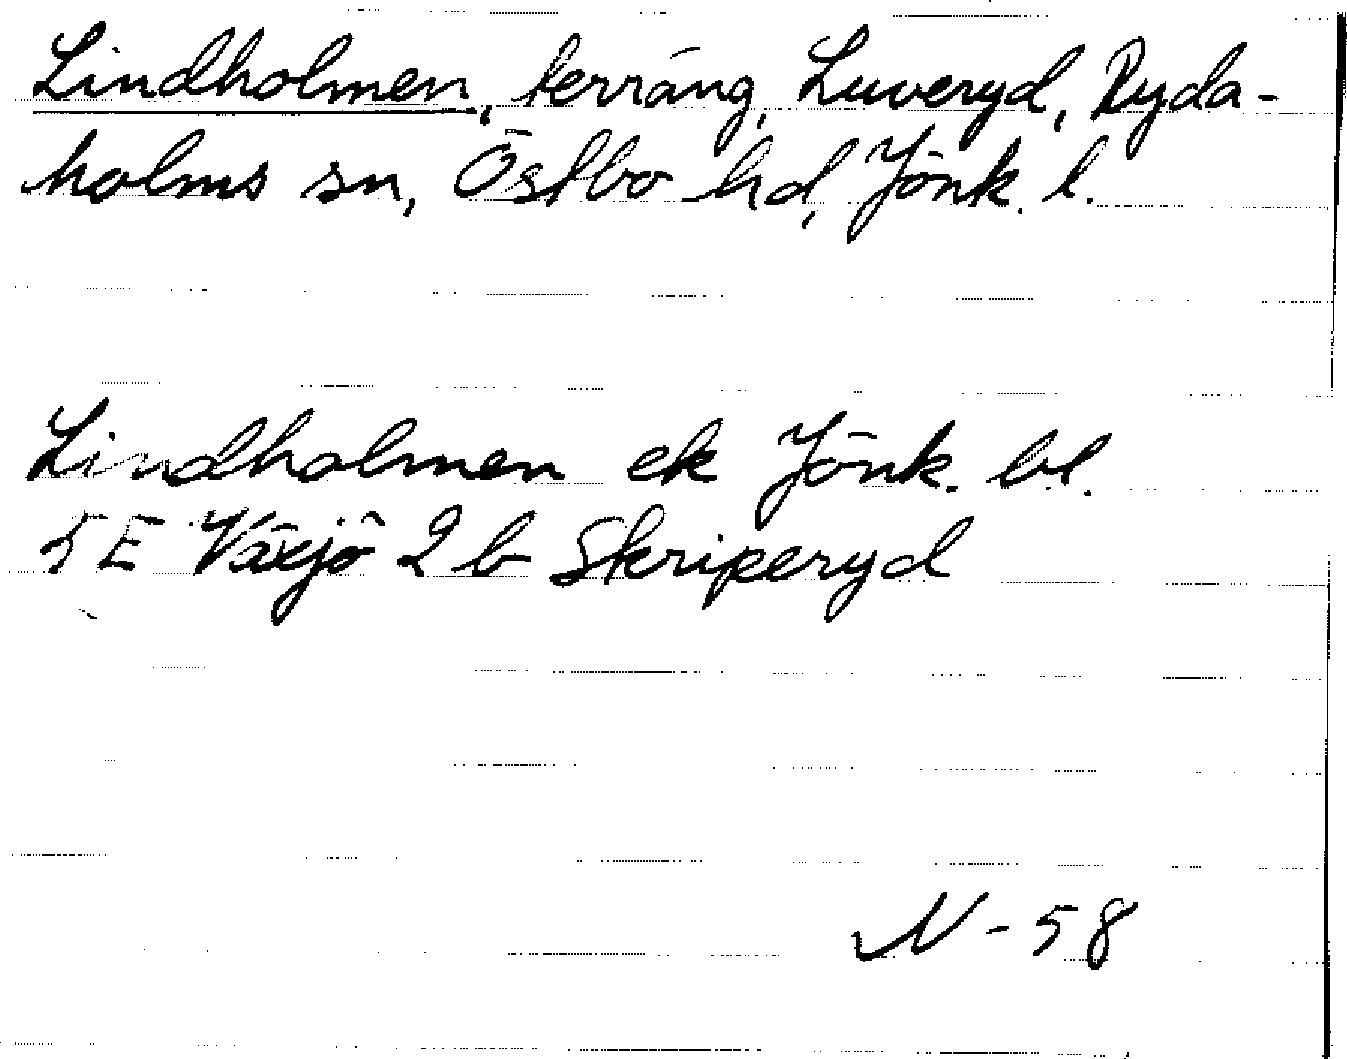 Lindholmen, terräng, Luveryd, Ryda-
holms sn, Östbo hd, Jönk. l.
Lindholmen ek Jönk. bl.
5E Växjö 2b Skriperyd
N-58